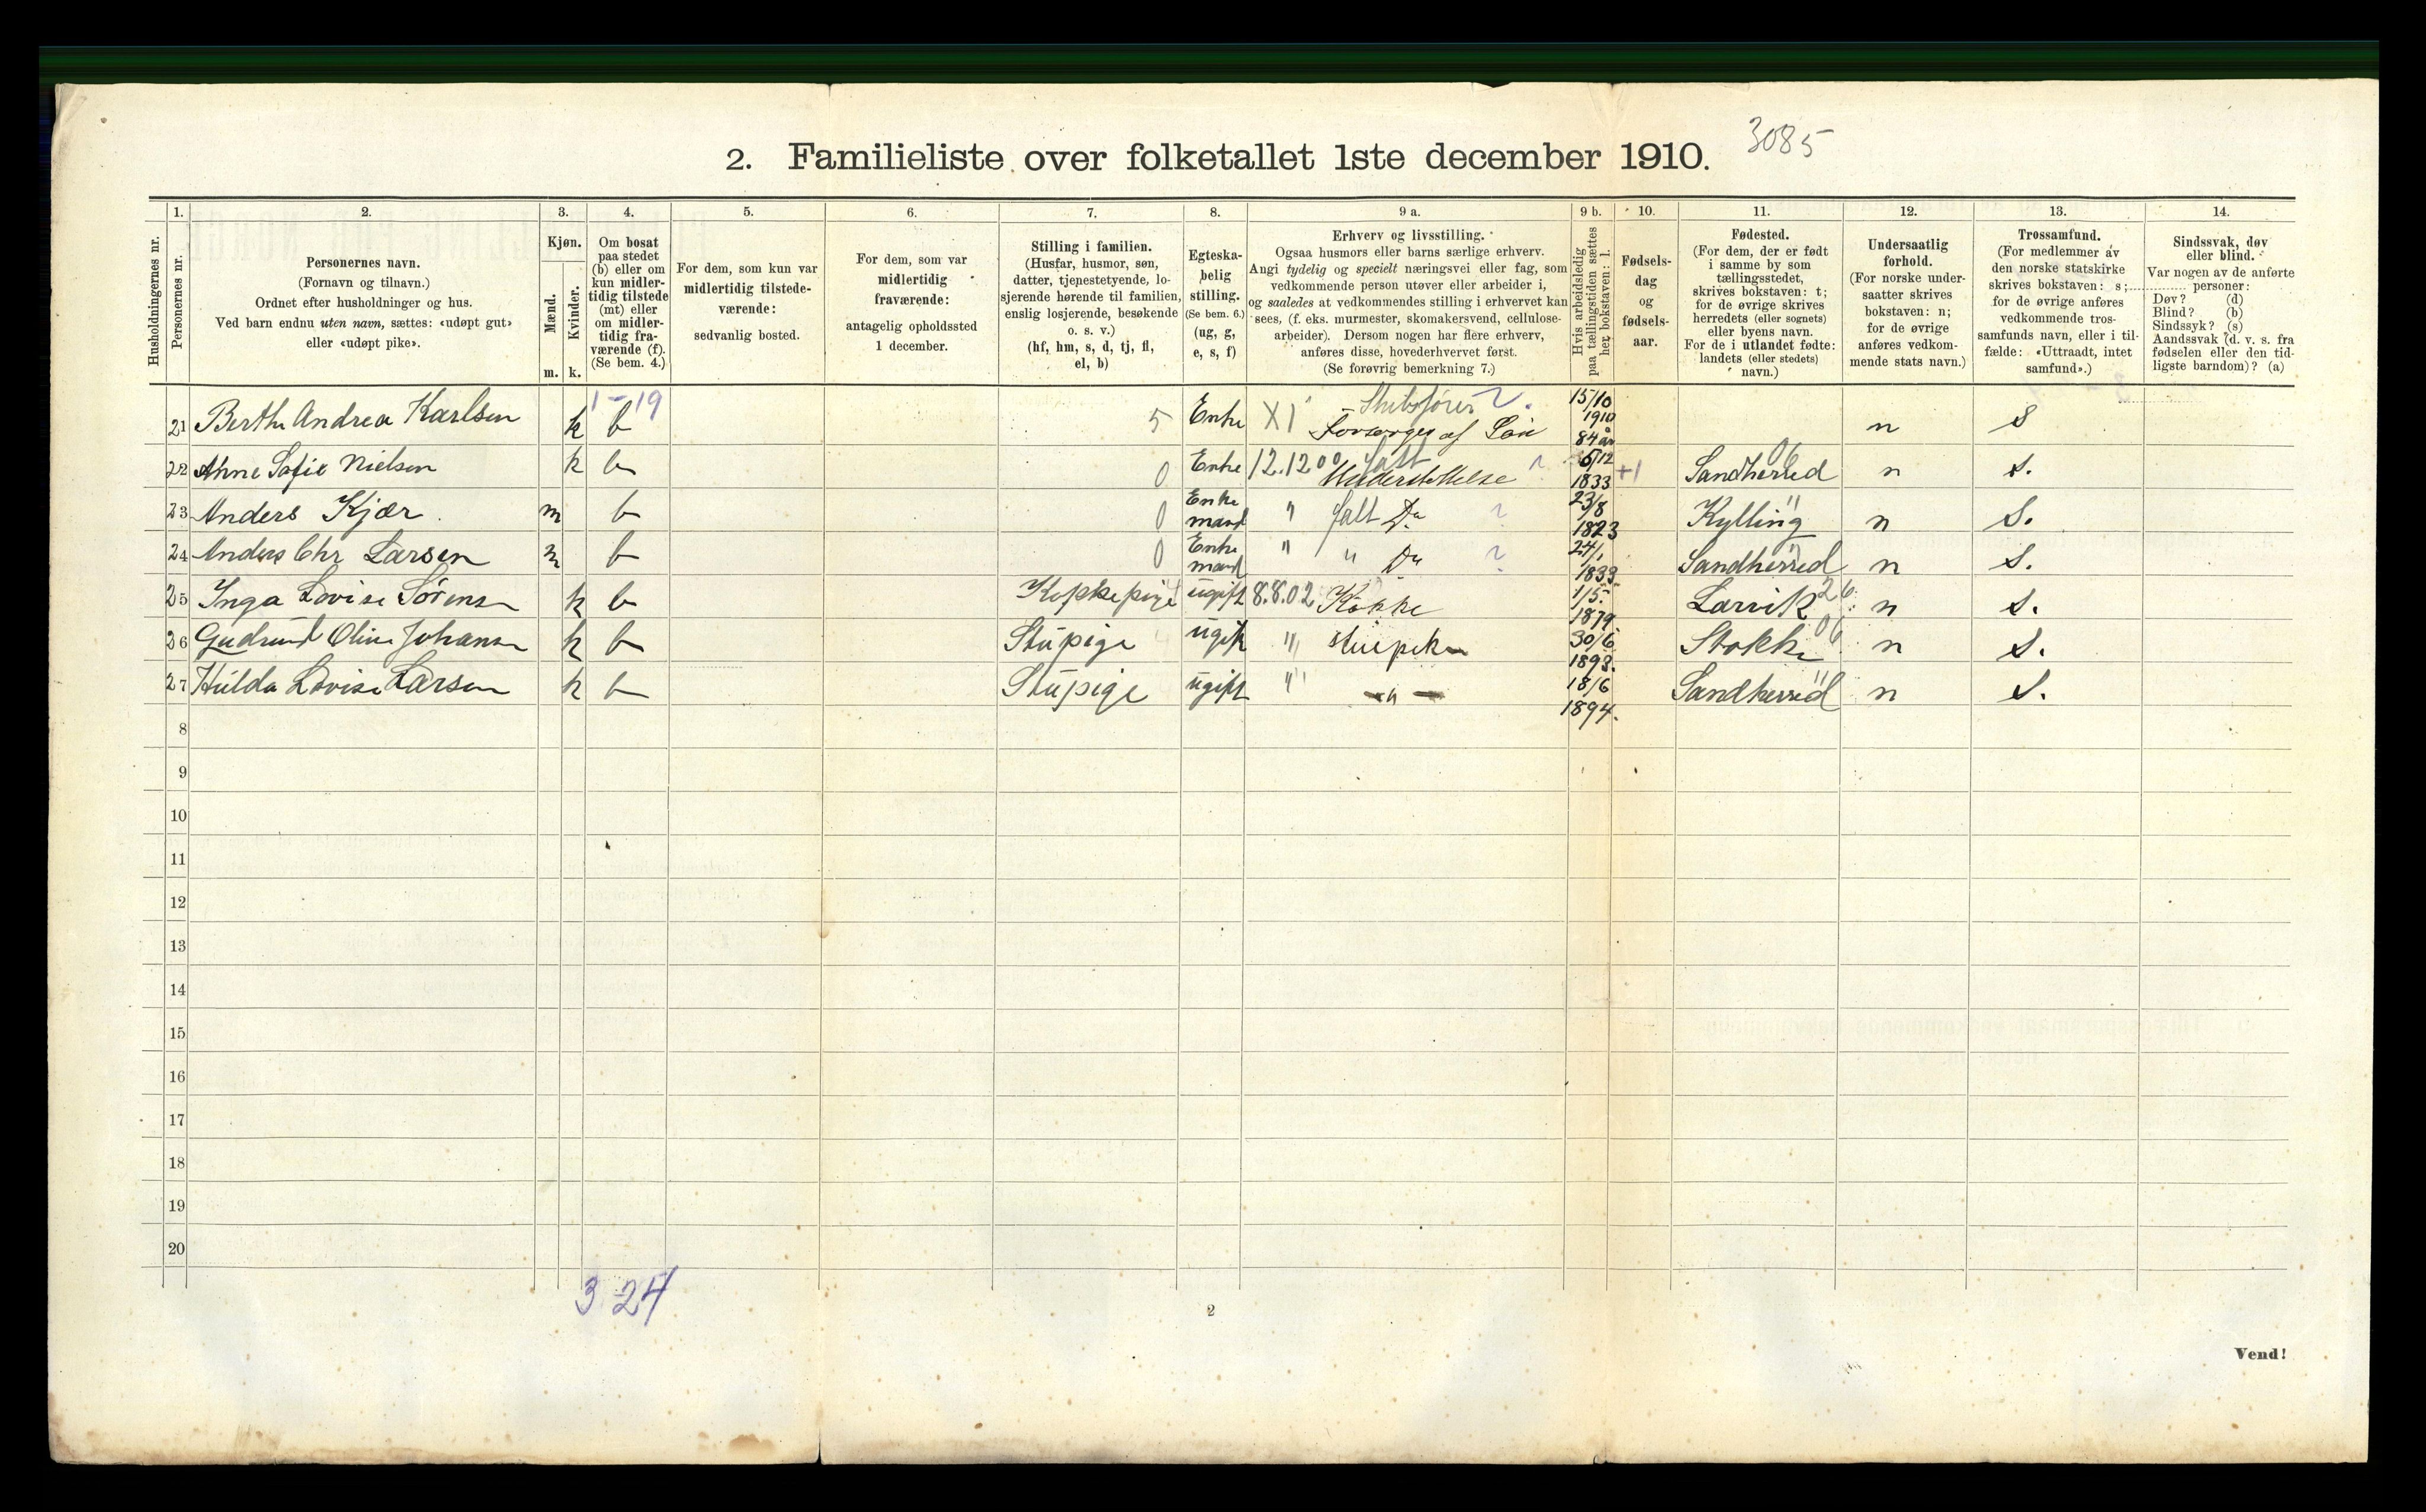 2. Familieliste over folketallet 1ste december 1910. 3085
Husholdningernes nr.
1. Personernes nr.
2. Personernes navn.
(Fornavn og tilnavn.)
Ordnet efter husholdninger og hus.
Ved barn endnu uten navn, sættes: «udøpt gut»
eller «udøpt pike».
3. Kjøn.
Mænd. m.
Kvinder. k.
4. Om bosat
paa stedet
(b) eller om
kun midler-
tidig tilstede
(mt) eller
om midler-
tidig fra-
værende (f).
(Se bem. 4.)
5. For dem, som kun var
midlertidig tilstede-
værende:
sedvanlig bosted.
6. For dem, som var
midlertidig
fraværende:
antagelig opholdssted
1 december.
7. Stilling i familien.
(Husfar, husmor, søn,
datter, tjenestetyende, lo-
sjerende hørende til familien,
enslig losjerende, besøkende
o. s. v.)
(hf, hm, s, d, tj, fl,
el, b)
8. Egteska-
belig
stilling.
(Se bem. 6.)
(ug, g,
e, s, f)
9 a. Erhverv og livsstilling.
Ogsaa husmors eller barns særlige erhverv.
Angi tydelig og specielt næringsvei eller fag, som
vedkommende person utøver eller arbeider i,
og saaledes at vedkommendes stilling i erhvervet kan
sees, (f. eks. murmester, skomakersvend, cellulose-
arbeider). Dersom nogen har flere erhverv,
anføres disse, hovederhvervet først.
(Se forøvrig bemerkning 7.)
9 b. Hvis arbeidsledig
paa tællingstiden sættes
her bokstaven: l.
10. Fødsels-
dag
og
fødsels-
aar.
11. Fødested.
(For dem, der er født
i samme by som
tællingsstedet,
skrives bokstaven: t;
for de øvrige skrives
herredets (eller sognets)
eller byens navn.
For de i utlandet fødte:
landets (eller stedets)
navn.)
12. Undersaatlig
forhold.
(For norske under-
saatter skrives
bokstaven: n;
for de øvrige
anføres vedkom-
mende stats navn.)
13. Trossamfund.
(For medlemmer av
den norske statskirke
skrives bokstaven: s;
for de øvrige anføres
vedkommende tros-
samfunds navn, eller i til-
fælde: «Uttraadt, intet
samfund».)
14. Sindssvak, døv
eller blind.
Var nogen av de anførte
personer:
Døv? (d)
Blind? (b)
Sindssyk? (s)
Aandssvak (d. v. s. fra
fødselen eller den tid-
ligste barndom)? (a)
1-19
21 Berthe Andrea Karlsen k b 5 Enke XI Forsørges af Søn 15/10 1910 84 år n S
22 Anne Sofie Nielsen k b 0 Enke 12.1200 falt Understøttelse 6/12 1833 +1 Sandherred 06 n S.
23 Anders Kjær m b 0 Enke mand " falt Do 23/8 1823 Kylling " n S.
24 Anders Chr Larsen m b 0 Enke mand " " Do 24/1 1833 Sandherred " n S.
25 Inga Lovise Sørensen k b Kokkepige ugift 8.8.02 Kokke 1/5 1879 Larvik 26 n S.
26 Gudrund Oline Johansen k b Stupige ugift " stuepike 30/6 1893. Stokke 06 n S.
27 Hulda Lovise Larsen k b Stupige ugift " — " — 18/6 1894. Sandherred " n S.
8
9
10
11
12
13
14
15
16
17
18
19
20
3 24
2
Vend!